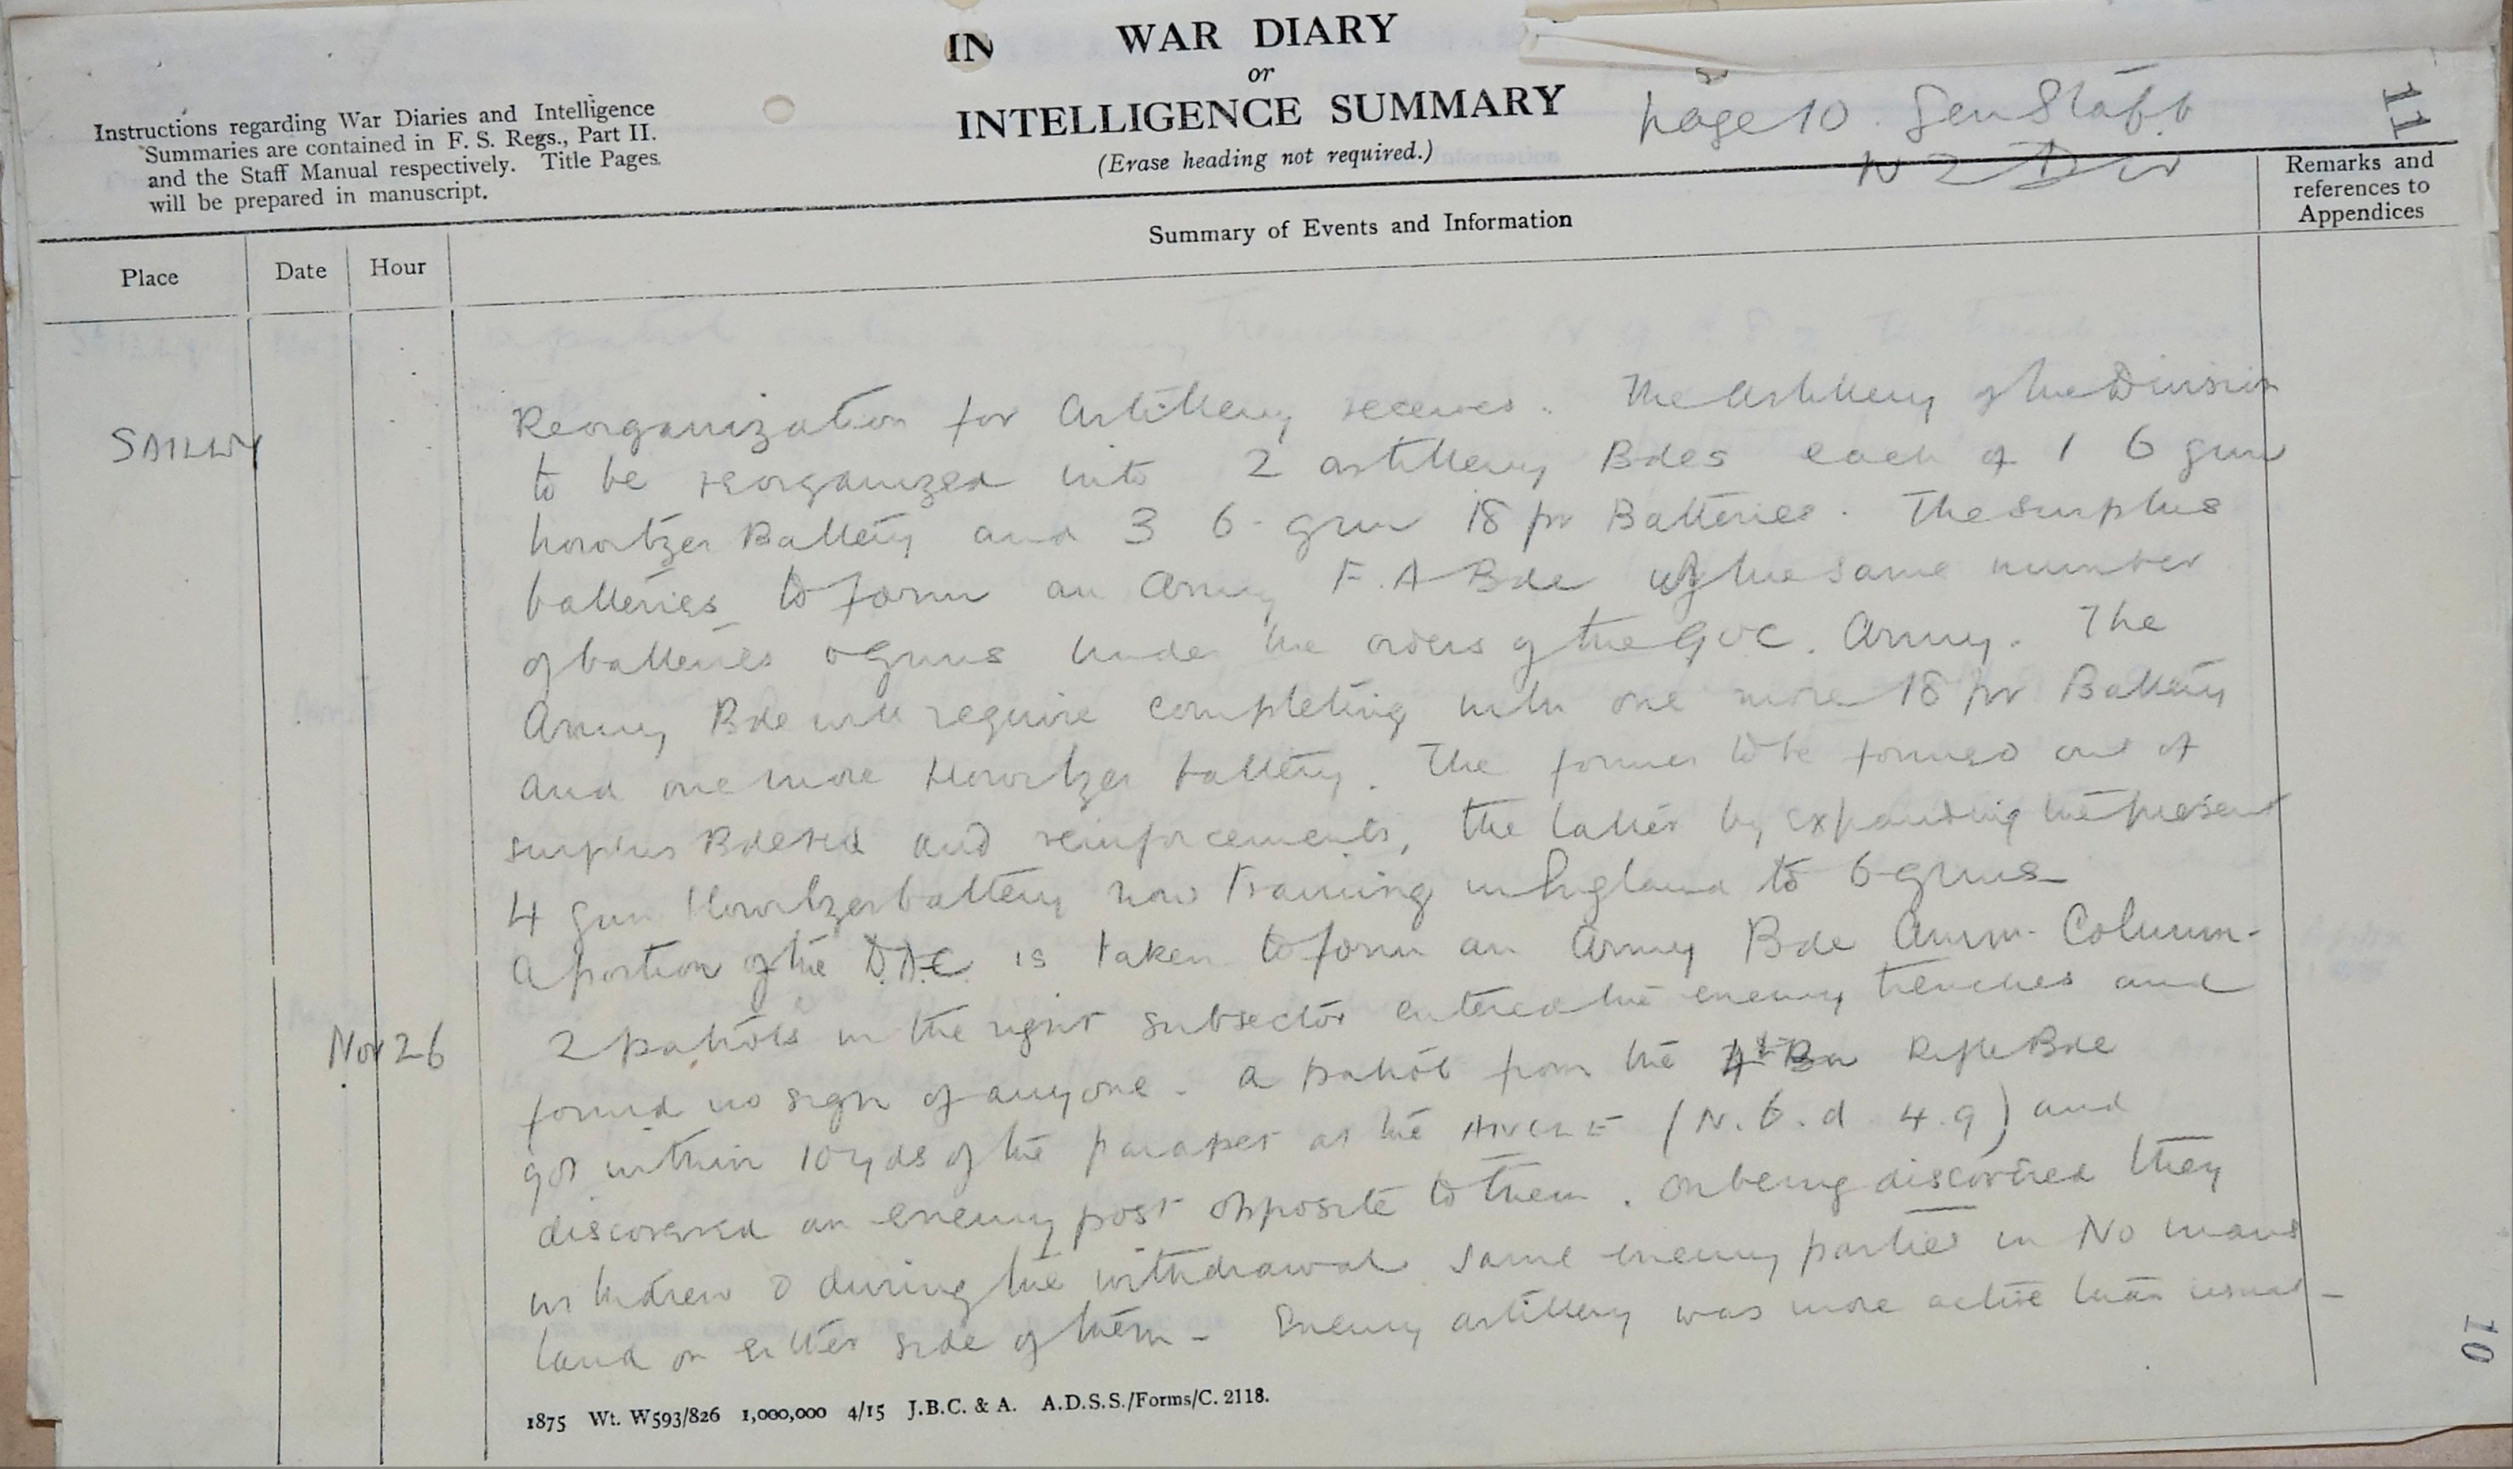 IN WAR DIARY
or
INTELLIGENCE SUMMARY
(Erase heading not required.)
Instructions regarding War Diaries and Intelligence
Summaries are contained in F. S. Regs., Part II.
and the Staff Manual respectively. Title Pages
will be prepared in manuscript.
page 10. Gen Staff
NZ Div
11
Place
Date
Hour
Summary of Events and Information
Remarks and
references to
Appendices
SAILLY
Reorganization for Artillery received. The Artillery of the Division
to be reorganized into 2 artillery Bdes each of 1 6 gun
howitzer Battery and 3 6-gun 18 pr Batteries. The surplus
batteries to form an Army F.A Bde of the same number
of batteries & guns under the orders of the GOC. Army. The
Army Bde will require completing with one more 18 pr Battery
and one more Howitzer battery. The former to be formed out of
surplus Bde and reinforcements, the latter by expanding the present
4 gun Howitzer battery now training in England to 6 guns-
A portion of the is taken to form an Army Bde Amm. Column-
Nov 26
2 patrols in the right subsector entered the enemy trenches and
found no sign of anyone. A patrol from the 4th Bn Rifle Bde
got within 10 yds of the parapet at the ANGLE (N.6.d 4.9) and
discovered an enemy post opposite to them. On being discovered they
withdrew & during the withdrawal enemy parties in No mans
land on either side of them - Enemy artillery was more active than usual-
1875 Wt. W593/826 1,000,000 4/15 J.B.C. & A. A.D.S.S./Forms/C. 2118.
10